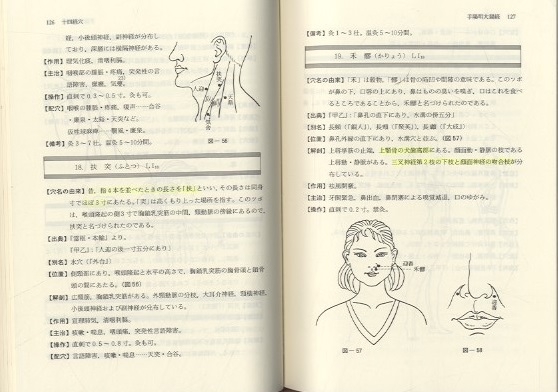 126 十四経穴
経, 小後頭神経, 副神経が分布し
ており, 深層には横隔神経がある。
【作用】理気化痰, 清咽利隔。
【主治】咽喉部の腫脹・疼痛, 突発性の言
語障害, 瘰癧, 気癭。
【操作】直刺で0.3～0.5寸。灸も可。
【配穴】咽喉の腫脹・疼痛, 嗄声……合谷
・廉泉・太陽・天突など。
仮性球麻痺……翳風・廉泉。
【備考】灸3～7壮。温灸5～10分間。
人迎
扶突
天鼎
缺盆
図－56
18. 扶 突（ふとつ）LI18
【穴名の由来】昔, 指4本を並べたときの長さを「扶」といい, その長さは同身
寸でほぼ3寸にあたる。「突」は高くもり上った場所を指す。このツボ
は, 喉頭隆起の側3寸で胸鎖乳突筋の中間, 頸動脈の傍線にあるので,
扶突と名づけられたのである。
【出典】『霊枢・本輸』より。
『甲乙』:「人迎の後一寸五分にあり」
【別名】水穴（『外台』）
【位置】側頸部にあり, 喉頭隆起と水平の高さで, 胸鎖乳突筋の胸骨頭と鎖骨
頭の間にあたる。（図56）
【解剖】広頸筋, 胸鎖乳突筋がある。外頸動脈の分枝, 大耳介神経, 頸横神経,
小後頭神経および副神経が分布している。
【作用】宣肺降気, 清咽利隔。
【主治】咳嗽・喘息, 咽頭痛, 突発性言語障害。
【操作】直刺で0.5～0.8寸。灸も可。
【配穴】言語障害, 咳嗽・喘息……天突・合谷。
手陽明大腸経 127
【備考】灸1～3壮。温灸5～10分間。
19. 禾 髎（かりょう）LI19
【穴名の由来】「禾」は穀物,「髎」は骨の陥凹や間隙の意味である。このツボ
が鼻の下, 口唇の上にあり, 鼻はものの臭いを嗅ぎ, 口はこれを食
べるところであることから, 禾髎と名づけられたのである。
【出典】『甲乙』:「鼻孔の直下にあり, 水溝の傍五分」
【別名】長頻（『銅人』）, 長頰（『聚英』）, 長髎（『大成』）
【位置】鼻孔外縁の直下にあり, 水溝穴と並ぶ。（図57）
【解剖】上唇挙筋の止端, 上顎骨の犬歯窩部にある。顔面動・静脈の枝である
上唇動・静脈がある。三叉神経第2枝の下枝と顔面神経の吻合枝が分
布している。
【作用】祛風開竅。
【主治】牙関緊急, 鼻出血, 鼻閉塞による嗅覚減退, 口のゆがみ。
【操作】直刺で0.2寸。禁灸。
迎香
禾髎
図－57
迎香
図－58